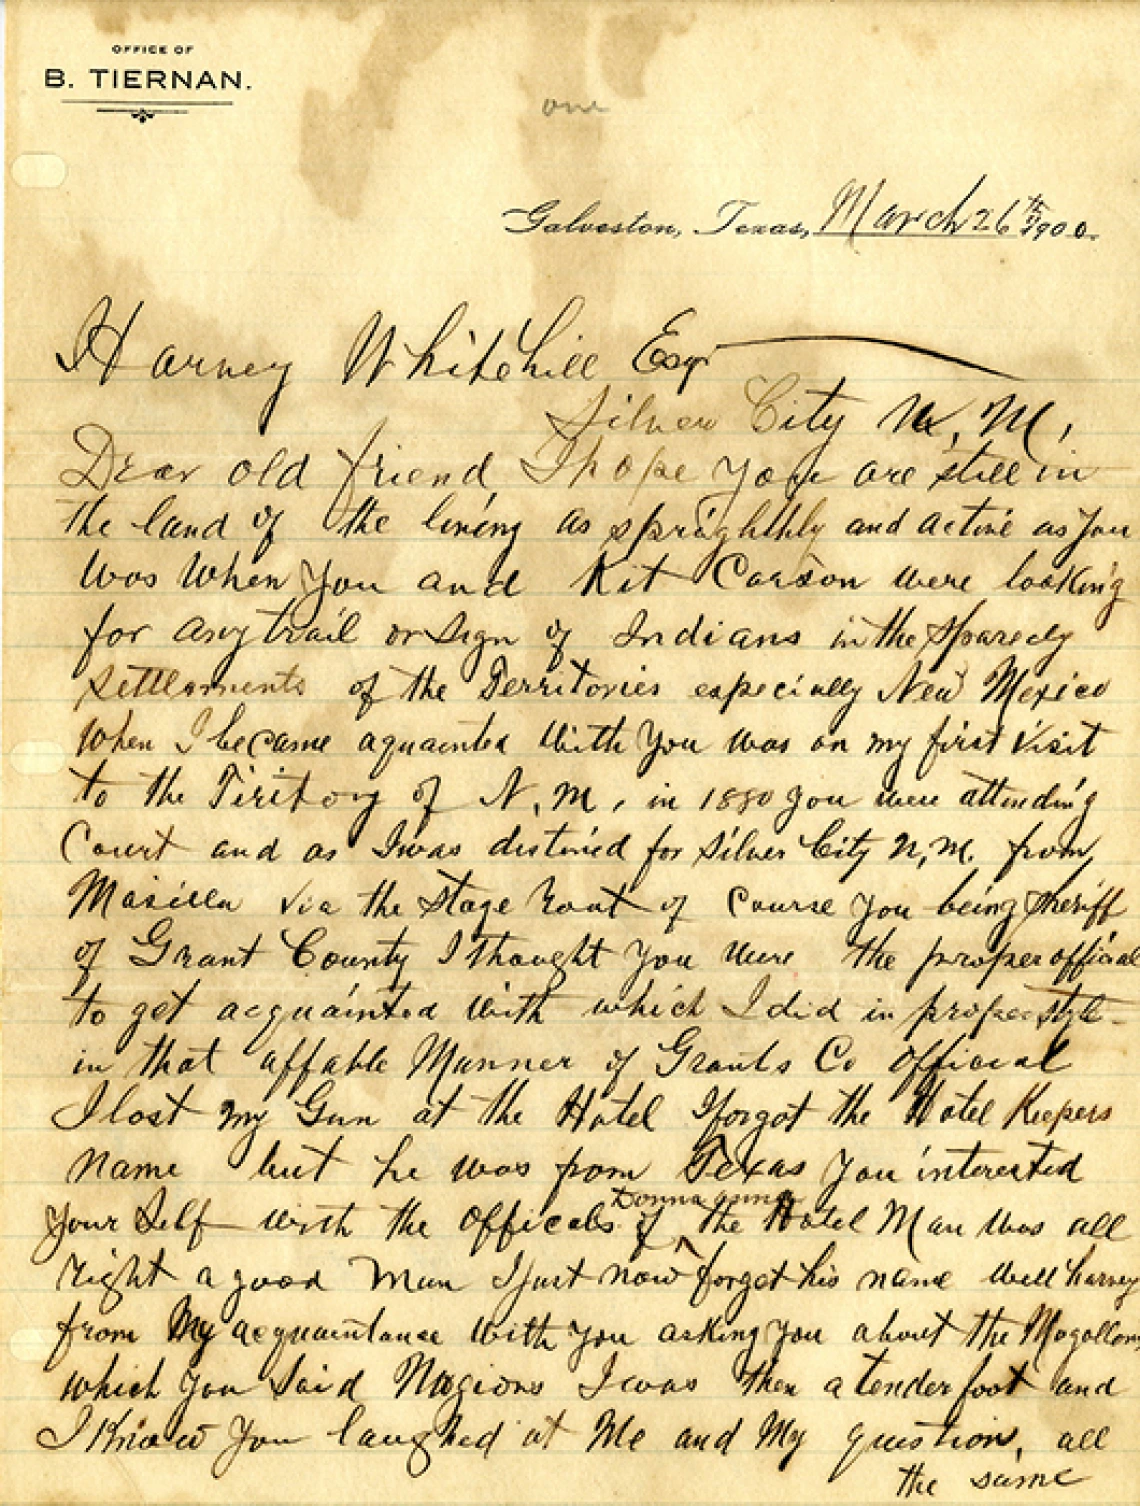 OFFICE OF
B. TIERNAN.
one
Galveston, Texas, March 26th 1900.
Harvey Whitehill Esqr
Silver City N. M.,
Dear old friend I hope you are still in
the land of the living as sprighthly and active as you
was when you and Kit Carson were looking
for any trail or sign of Indians in the sparcely
settlements of the Territories especially New Mexico
when I became aquainted with you was on my first visit
to the Tiritory of N. M. in 1880 you were attending
Court and as I was destined for Silver City N. M. from
Masilla via the stage rout of course you being sheriff
of Grant County I thought you were the proper official
to get acquainted with which I did in proper style
in that affable manner of Grants Co official
I lost my Gun at the Hotel I forgot the Hotel Keepers
name but he was from Texas you interested
your self with the officals of Donna the Hotel Man was all
right a good man I just now forget his name well harvey
from My acquaintance with you asking you about the Mogollons
which you said Mogions I was then a tender foot and
I Know you laughed at Me and My question, all
the same